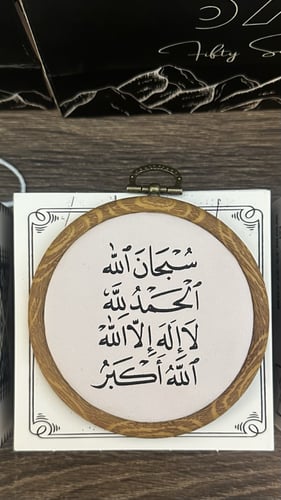 Fifty
سُبْحَانَ ٱللَّٰه
ٱلْحَمْدُ لِلَّٰه
لَا إِلٰهَ إِلَّا ٱللَّٰه
ٱللَّٰهُ أَكْبَرُ